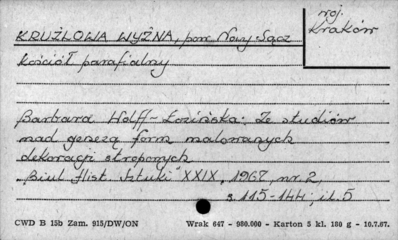 woj.
Kraków
KRUŻLOWA WYŻNA, pow. Nowy Sącz
kościół parafialny
Barbara Wolff-Łozińska: Ze studiów
nad genezą form malowanych
dekoracji stropowych
„Biul. Hist. Sztuki" XXIX, 1967, nr. 2,
s. 115-144, il. 5
CWD B 15b Zam. 915/DW/ON
Wrak 647 - 980.000 - Karton 5 kl. 180 g - 10.7.67.